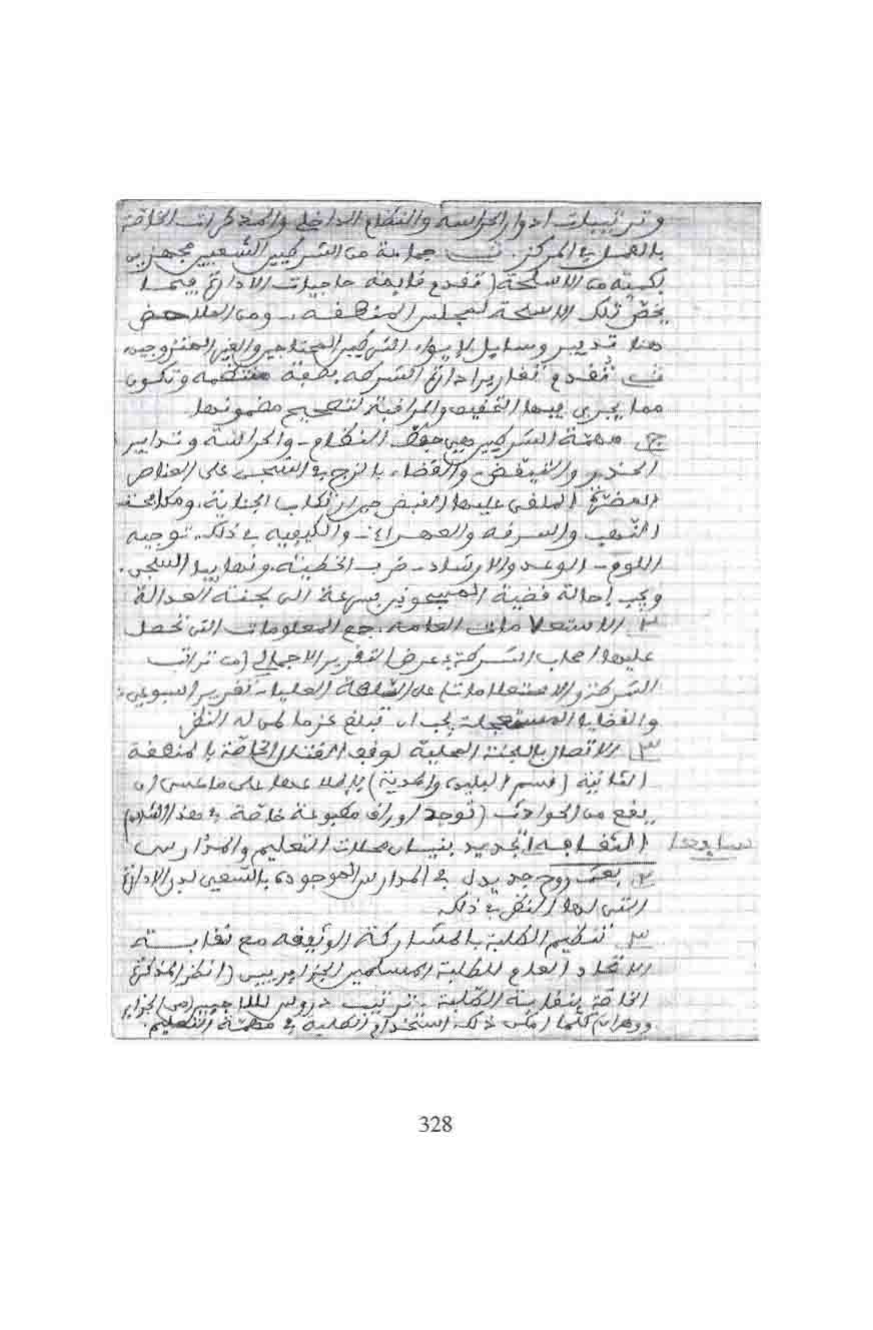 وترتيبات ادوار الحراسة والنظام الداخلي والمذكرات الخاصة
بالعمل في المركز. ث جماعة من الشرطيين الشعبيين مجهزين
بكمية من الاسلحة (تقدم قايمة حاجيات الادارة فيما
يخص تلك الاسلحة لمجلس المنطقة . ومن
هنا تدبير وسايل لإيواء الشرطيين المحتاجين والغير المتزوجين
ث تُقدم تقارير ادارة الشرطة بصفة منتظمة وتكون
مما يجرى فيها التحقيق والمراقبة لتصحيح مضمونها.
ج مهمة الشرطيين هي حفظ النظام - والحراسة وتدابير
الحذر والتيقظ - والقضاء بالزج في السجن على العناصر
المضرة الملقى عليها القبض جراء ارتكاب الجناية، ومكافحة
النهب والسرقة والعهارة - والكيفية في ذلك. توجيه
اللوم - الوعد والارشاد - ضرب الخطيئة ونهاييا السجن.
ويجب إحالة قضية المسجونين بسرعة الى لجنة العدالة
٢ الاستعلامات العامة. جمع المعلومات التي تحصل
عليها اصحاب الشركة: عرض التقرير الاجمالي (من تراتب
الشرطة والاستعلامات) على السلطة العليا - تقرير اسبوعي:
والقضايا المستعجلة يجب ان تبلغ عزما لمن له النظر
٣ الاتصال باللجنة المحلية لوقف القتال الخاصة بالمنطقة
الثانية (قسم البليدة والمدية) للإطلاع على ما عسى ان
يقع من الحوادث (توجد اوراق مطبوعة خاصة في هذا الشأن)
سابعا / الثقافة التجديد بنيان محلات التعليم والمدارس
٢ بعث روح جديدة في المدارس الموجودة بالسعي لدى الادارة
التي لها النظر في ذلك.
٣ تنظيم الطلبة بالمشاركة الوثيقة مع نقابة
الاتحاد العام للطلبة المسلمين الجزايريين (انظر المذكرة
الخاصة بنقابة الطلبة - ترتيب دروس للاجيين من الجزاير
ووهران كلما امكن ذلك. استخدام الطلبة في مهمة التعليم.
328